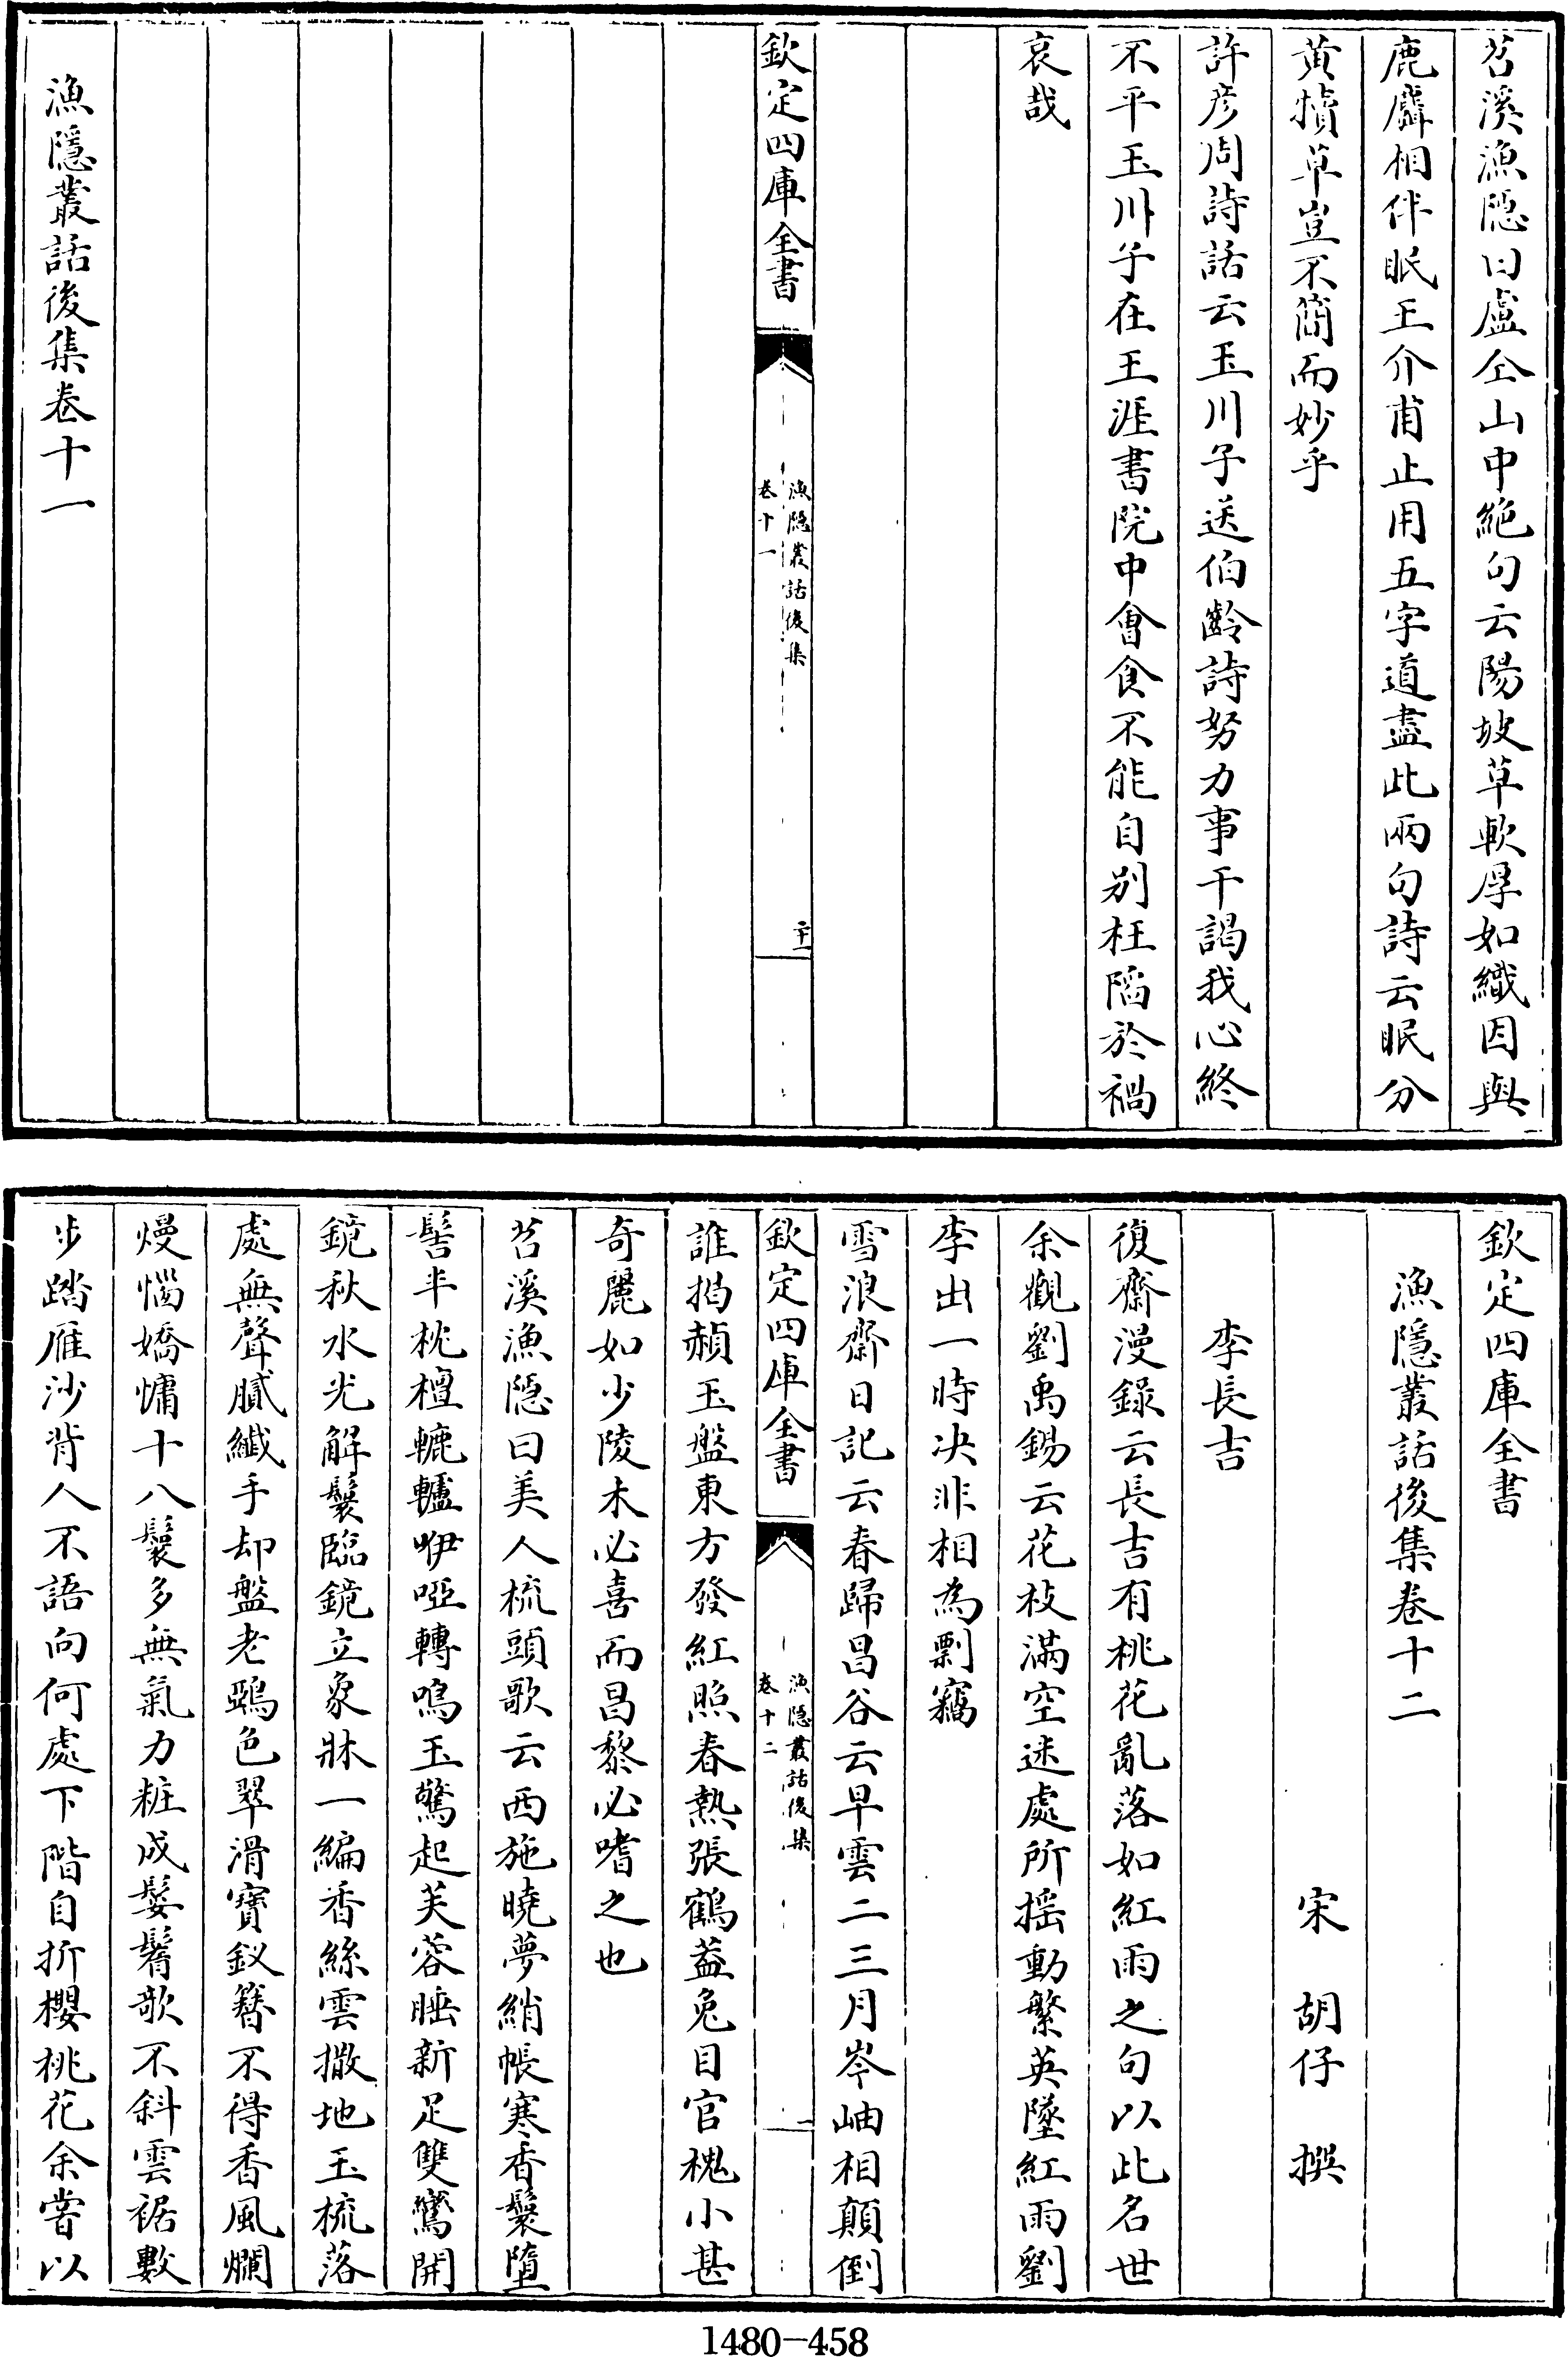 苕溪漁隱曰盧仝山中絶句云陽坡草軟厚如織因與
鹿麛相伴眠王介甫止用五字道盡此兩句詩云眠分
黄犢草豈不簡而妙乎
許彦周詩話云玉川子送伯齡詩努力事干謁我心終
不平玉川子在王涯書院中會食不能自别枉陷於禍
哀哉
欽定四庫全書
漁隱叢話後集
卷十一
二十一
漁隱叢話後集卷十一
欽定四庫全書
漁隱叢話後集卷十二
宋 胡仔 撰
李長吉
復齋漫錄云長吉有桃花亂落如紅雨之句以此名世
余觀劉禹錫云花枝滿空迷處所揺動繁英墜紅雨劉
李出一時决非相為剽竊
雪浪齋日記云春歸昌谷云早雲二三月岑岫相顛倒
欽定四庫全書
漁隱叢話後集
卷十二
一
誰揭赬玉盤東方發紅照春熱張鶴蓋兔目官槐小甚
奇麗如少陵未必喜而昌黎必嗜之也
苕溪漁隱曰美人梳頭歌云西施曉夢綃帳寒香鬟墮
髻半枕檀轆轤咿啞轉鳴玉驚起芙蓉睡新足雙鸞開
鏡秋水光解鬟臨鏡立象牀一編香絲雲撒地玉梳落
處無聲膩纖手却盤老鵶色翠滑寶釵簪不得香風爛
熳惱嬌慵十八鬟多無氣力粧成鬌鬌欹不斜雲裾數
步踏雁沙背人不語向何處下階自折櫻桃花余嘗以
1480-458